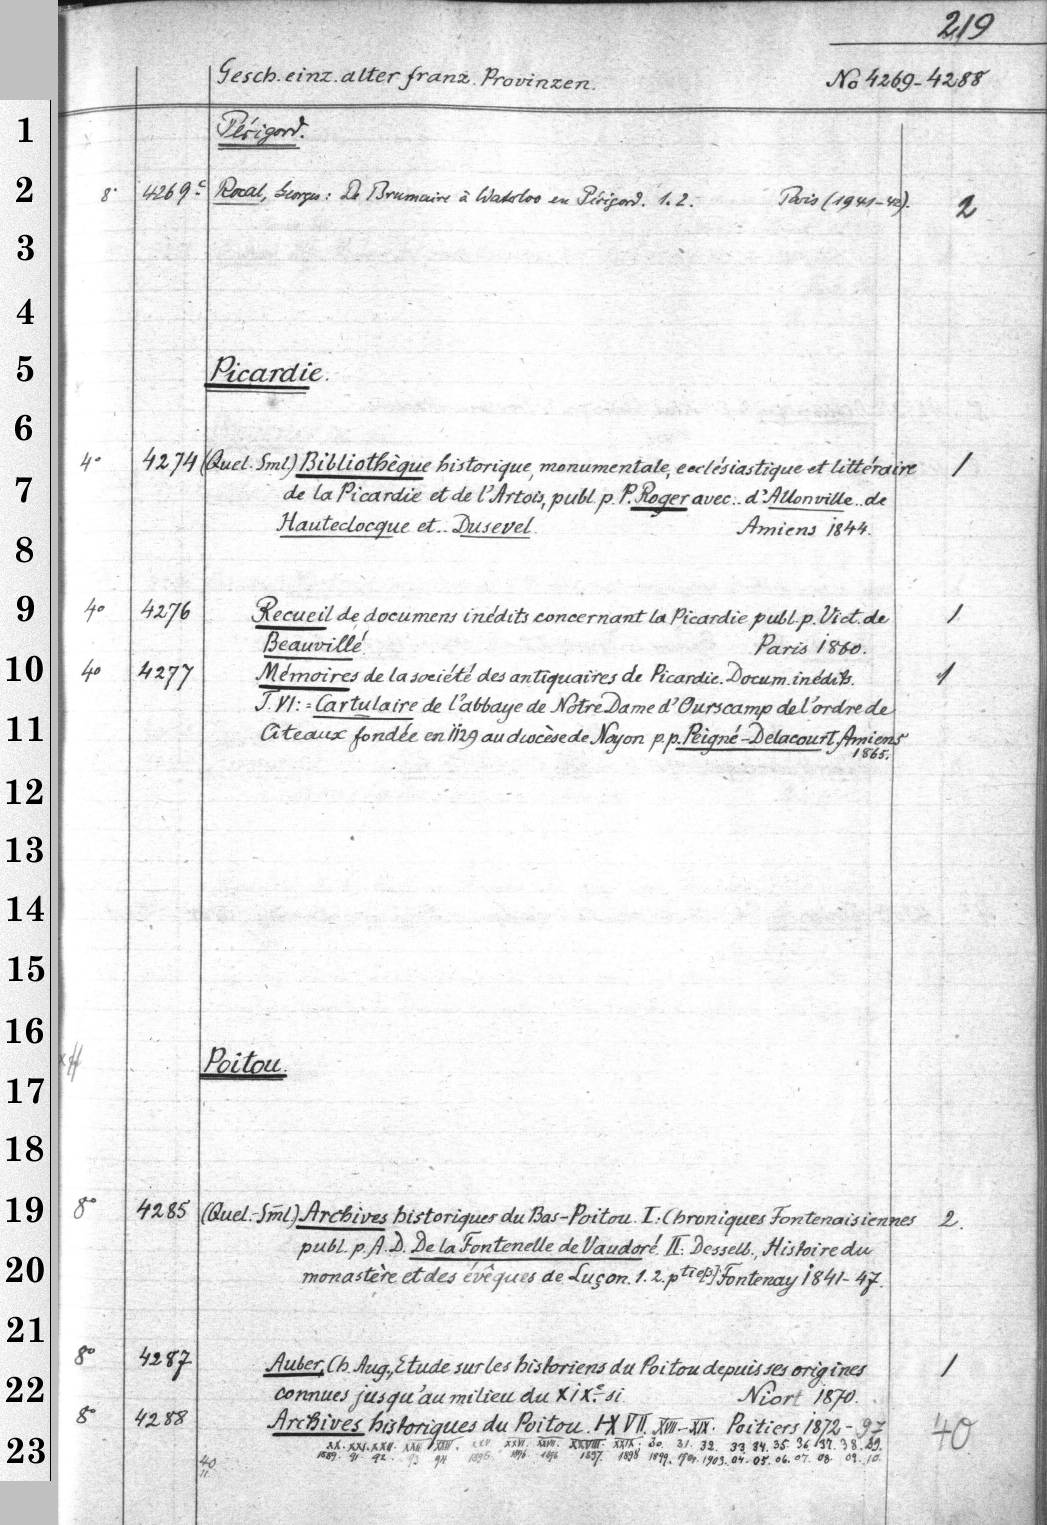 219
Gesch. einz. alter franz. Provinzen. No 4269-4288
1 Périgord.
2 8° 4269c Rocal, Georges: De Brumaire à Waterloo en Périgord. 1. 2. Paris (1941-42). 2
3
4
5 Picardie.
6
4° 4274 (Quel. Sml.) Bibliothèque historique, monumentale, ecclésiastique et littéraire 1
7 de la Picardie et de l'Artois, publ. p. P. Roger avec.. d'Allonville.. de
Hauteclocque et.. Dusevel. Amiens 1844.
8
9 4° 4276 Recueil de documens inédits concernant la Picardie publ. p. Vict. de 1
Beauvillé. Paris 1860.
10 4° 4277 Mémoires de la société des antiquaires de Picardie. Docum. inédits. 1
T. VI: = Cartulaire de l'abbaye de Notre Dame d'Ourscamp de l'ordre de
11 Citeaux fondée en 1129 au diocèse de Noyon p. p. Peigné-Delacourt, Amiens
1865.
12
13
14
15
16
Poitou.
17
18
19 8° 4285 (Quel.-Sml.) Archives historiques du Bas-Poitou. I: Chroniques Fontenaisiennes 2.
publ. p. A. D. De la Fontenelle de Vaudoré. II: Desselb., Histoire du
20 monastère et des évêques de Luçon. 1. 2. ptie[s] Fontenay 1841-47.
21
8° 4287 Auber, Ch. Aug., Etude sur les historiens du Poitou depuis ses origines 1
22 connues jusqu'au milieu du XIXe si. Niort 1870.
8° 4288 Archives historiques du Poitou. I-XVII. XVII-XIX. Poitiers 1872-97 40
23 XX. XXI. XXII. XXIII. XXV. XXVI. XXVII. XXVIII. XXIX. 30. 31. 32. 33. 34. 35. 36. 37. 38. 39.
40 1889. 91. 92. 93. 94. 1895. 1896. 1896. 1897. 1898. 1899. 1901. 1903. 04. 05. 06. 07. 08. 09. 10.
11.